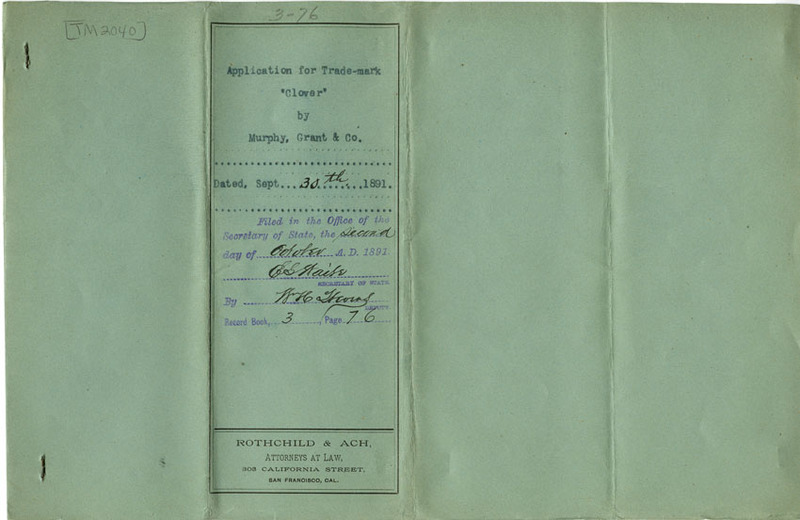 [TM2040]
3-76
Application for Trade-mark
"Clover"
by
Murphy, Grant & Co.
Dated, Sept....30th........1891.
Filed in the Office of the
Secretary of State, the Second
day of October A. D. 1891
E G Waite
SECRETARY OF STATE
By W H
DEPUTY
Record Book, 3, Page 76
ROTHCHILD & ACH,
ATTORNEYS AT LAW,
303 CALIFORNIA STREET,
SAN FRANCISCO, CAL.